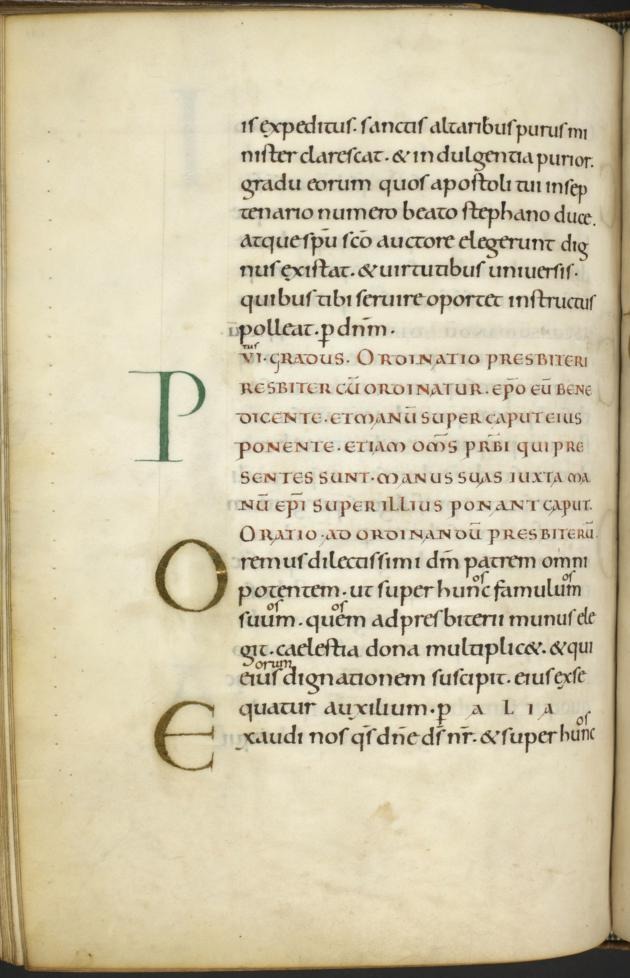 is expeditus. sanctis altaribus purus mi
nister clarescat. & indulgentia purior.
gradu eorum quos apostoli tui in sep
tenario numero beato stephano duce.
atque spū sc̄o auctore elegerunt dig
nus existat. & uirtutibus uniuersis.
quibus tibi seruire oportet instructus
polleat. ꝑ dn̄m.
tus
VI. GRADUS. ORDINATIO PRESBITERI
PRESBITER CŪ ORDINATUR. EP̄O EŪ BENE
DICENTE. ET MANŪ SUPER CAPUT EIUS
PONENTE. ETIAM OM̄S PR̄BI QUI PRE
SENTES SUNT. MANUS SUAS IUXTA MA
NŪ EP̄I SUPER ILLIUS PONANT CAPUT.
ORATIO. AD ORDINANDŪ PRESBITERŪ.
Oremus dilectissimi dm̄ patrem omni
os os
potentem. ut super hunc famulum
os os
suum. quem ad presbiterii munus ele
git. caelestia dona multiplic&. & qui
orum
eius dignationem suscipit. eius exse
quatur auxilium. ꝑ ALIA
os
Exaudi nos qs̄ dn̄e ds̄ nr̄. & super hunc